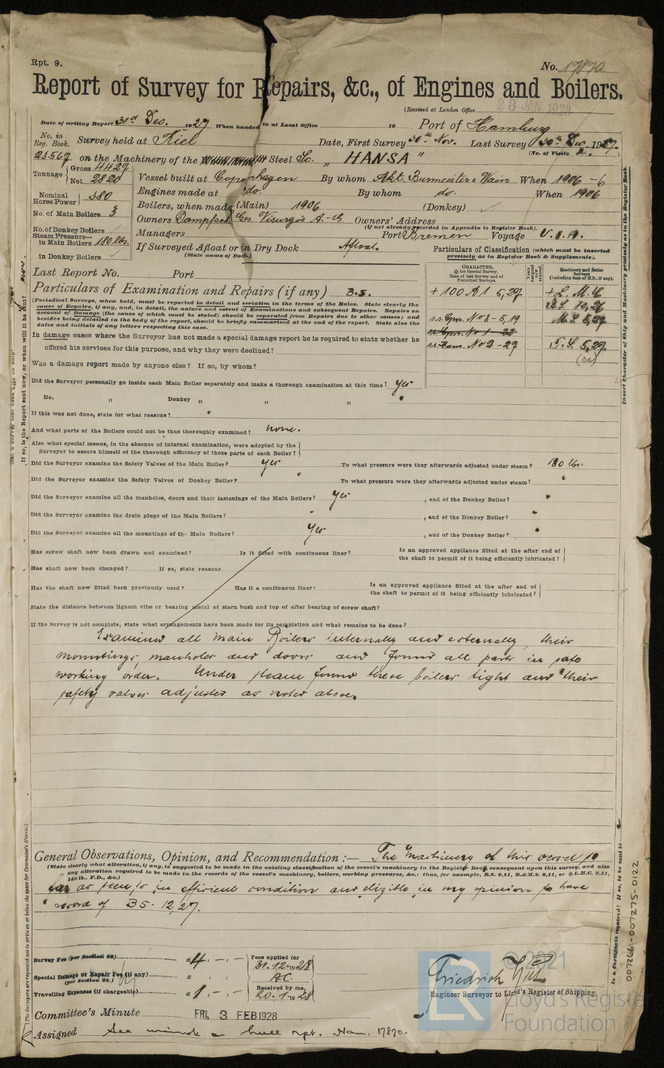 Rpt. 9.
No. 17870
Report of Survey for Repairs, &c., of Engines and Boilers.
(Received at London Office
Date of writing Report 31st Dec. 1927 When handed in at Local Office 19 Port of Hamburg
No. in Reg. Book. Survey held at Kiel Date, First Survey 30th Nov. Last Survey 30th Dec. 1927
(No. of Visits
23567 on the Machinery of the Steel Sc. "HANSA"
Tonnage Gross 4429
Net 2820
Vessel built at Copenhagen By whom Akt. Burmeister & Wain When 1906-6
Nominal Horse Power 380
Engines made at do. By whom do. When 1906
No. of Main Boilers 3
Boilers, when made (Main) 1906 (Donkey)
No. of Donkey Boilers
Owners Dampfsch. Ges. Visurgis A.-G. Owners' Address
(if not already recorded in Appendix to Register Book.)
Steam Pressure in Main Boilers 180 lbs.
Managers Port Bremen Voyage U.S.A.
in Donkey Boilers
If Surveyed Afloat or in Dry Dock Afloat.
(State name of Dock.)
Particulars of Classification (which must be inserted precisely as in Register Book & Supplements).
Last Report No. Port
Particulars of Examination and Repairs (if any) B.S.
+ 100 A1 5,27
+ L.M.C
s.s. Gen. No 3-5,19
s.s. Ham. No 2-27
(Periodical Surveys, when held, must be reported in detail and seriatim in the terms of the Rules. State clearly the
cause of Repairs, if any, and, in detail, the nature and extent of Examinations and subsequent Repairs. Repairs on
account of Damage (the cause of which must be stated) should be separated from Repairs due to other causes; and
besides being detailed in the body of the report, should be briefly summarised at the end of the report. State also the
dates and initials of any letters respecting this case.
In damage cases where the Surveyor has not made a special damage report he is required to state whether he
offered his services for this purpose, and why they were declined?
Was a damage report made by anyone else? If so, by whom?
Did the Surveyor personally go inside each Main Boiler separately and make a thorough examination at this time? yes
Do. " Donkey " " " "
If this was not done, state for what reasons?
And what parts of the Boilers could not be thus thoroughly examined? none.
Also what special means, in the absence of internal examination, were adopted by the
Surveyor to assure himself of the thorough efficiency of those parts of each Boiler?
Did the Surveyor examine the Safety Valves of the Main Boiler? yes To what pressure were they afterwards adjusted under steam? 180 lbs.
Did the Surveyor examine the Safety Valves of Donkey Boiler? To what pressure were they afterwards adjusted under steam?
Did the Surveyor examine all the manholes, doors and their fastenings of the Main Boilers? yes , and of the Donkey Boiler?
Did the Surveyor examine the drain plugs of the Main Boilers? , and of the Donkey Boiler?
Did the Surveyor examine all the mountings of the Main Boilers? yes , and of the Donkey Boiler?
Has screw shaft now been drawn and examined? Is it fitted with continuous liner? Is an approved appliance fitted at the after end of
the shaft to permit of it being efficiently lubricated?
Has shaft now been changed? If so, state reasons
Has the shaft now fitted been previously used? Has it a continuous liner? Is an approved appliance fitted at the after end of
the shaft to permit of it being efficiently lubricated?
State the distance between lignum vitæ or bearing metal of stern bush and top of after bearing of screw shaft?
If the Survey is not complete, state what arrangements have been made for its completion and what remains to be done?
Examined all main Boilers internally and externally, their
mountings, manholes and doors and found all parts in safe
working order. Under steam found these boilers tight and their
safety valves adjusted as noted above.
General Observations, Opinion, and Recommendation:— The Machinery of this vessel so
(State clearly what alteration, if any, is suggested to be made in the existing classification of the vessel's machinery in the Register Book, consequent upon this survey, and also
any alteration required to be made in the records of the vessel's machinery, boilers, working pressures, &c.; thus, for example,
far as seen is in efficient condition and eligible in my opinion to have
record of BS. 12,27.
Survey Fee (per Section 28) 4 . - . -
Fees applied for
31.12.1928
Special Damage or Repair Fee (if any)
(per Section 28.)
AC.
Received by me,
Travelling Expenses (if chargeable) 1 . - . -
20.1.1928
Engineer Surveyor to Lloyd's Register of Shipping.
Committee's Minute FRI. 3 FEB 1928
Assigned See minute on hull rpt. Ham. 17870.
007266-007275-0122
LR
© 2021
Lloyd's Register
Foundation